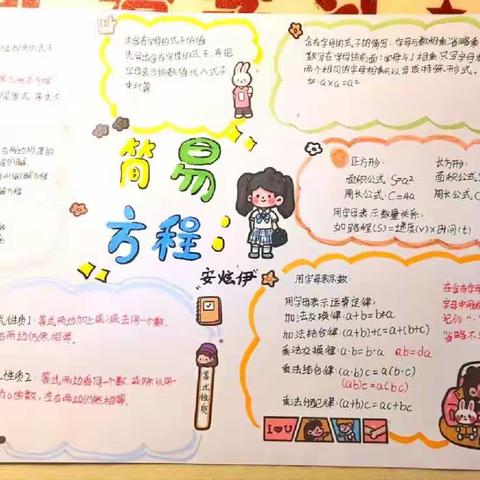 求含有字母的式子的值
先写出含有字母的式子,再把
字母表示的数值代入式子
中计算
含有字母的式子的简写:字母与数相乘省略乘
数写在字母的前面;字母与1相乘只写字母
两个相同的字母相乘可以写成特殊形式。
如:a×a=a²
简易
方程:
"安炫伊"
正方形:
面积公式:S=a²
周长公式:C=4a
长方形:
面积公式:S
周长公式:C
用字母表示数量关系:
如路程(S)=速度(v)×时间(t)
式性质1:等式两边加上或减去同一个数,
左右两边仍然相等。
式性质2:等式两边乘同一个数,或除以同一
为0的数,左右两边仍然相等。
等式性质
用字母表示数:
用字母表示运算定律:
加法交换律:a+b=b+a
加法结合律:(a+b)+c=a+(b+c)
乘法交换律:a·b=b·a ab=da
乘法结合律:(a·b)·c=a(b·c)
(ab)c=a(bc)
乘法分配律:(a+b)c=ac+bc
在含有字母
字母中间的
记作"·"
省略不
I❤U